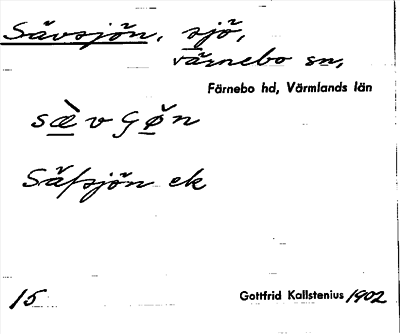 Sävsjön, sjö,
Färnebo sn,
Färnebo hd, Värmlands län
sæ̀vȷøn
Säfsjön ek
15
Gottfrid Kallstenius 1902